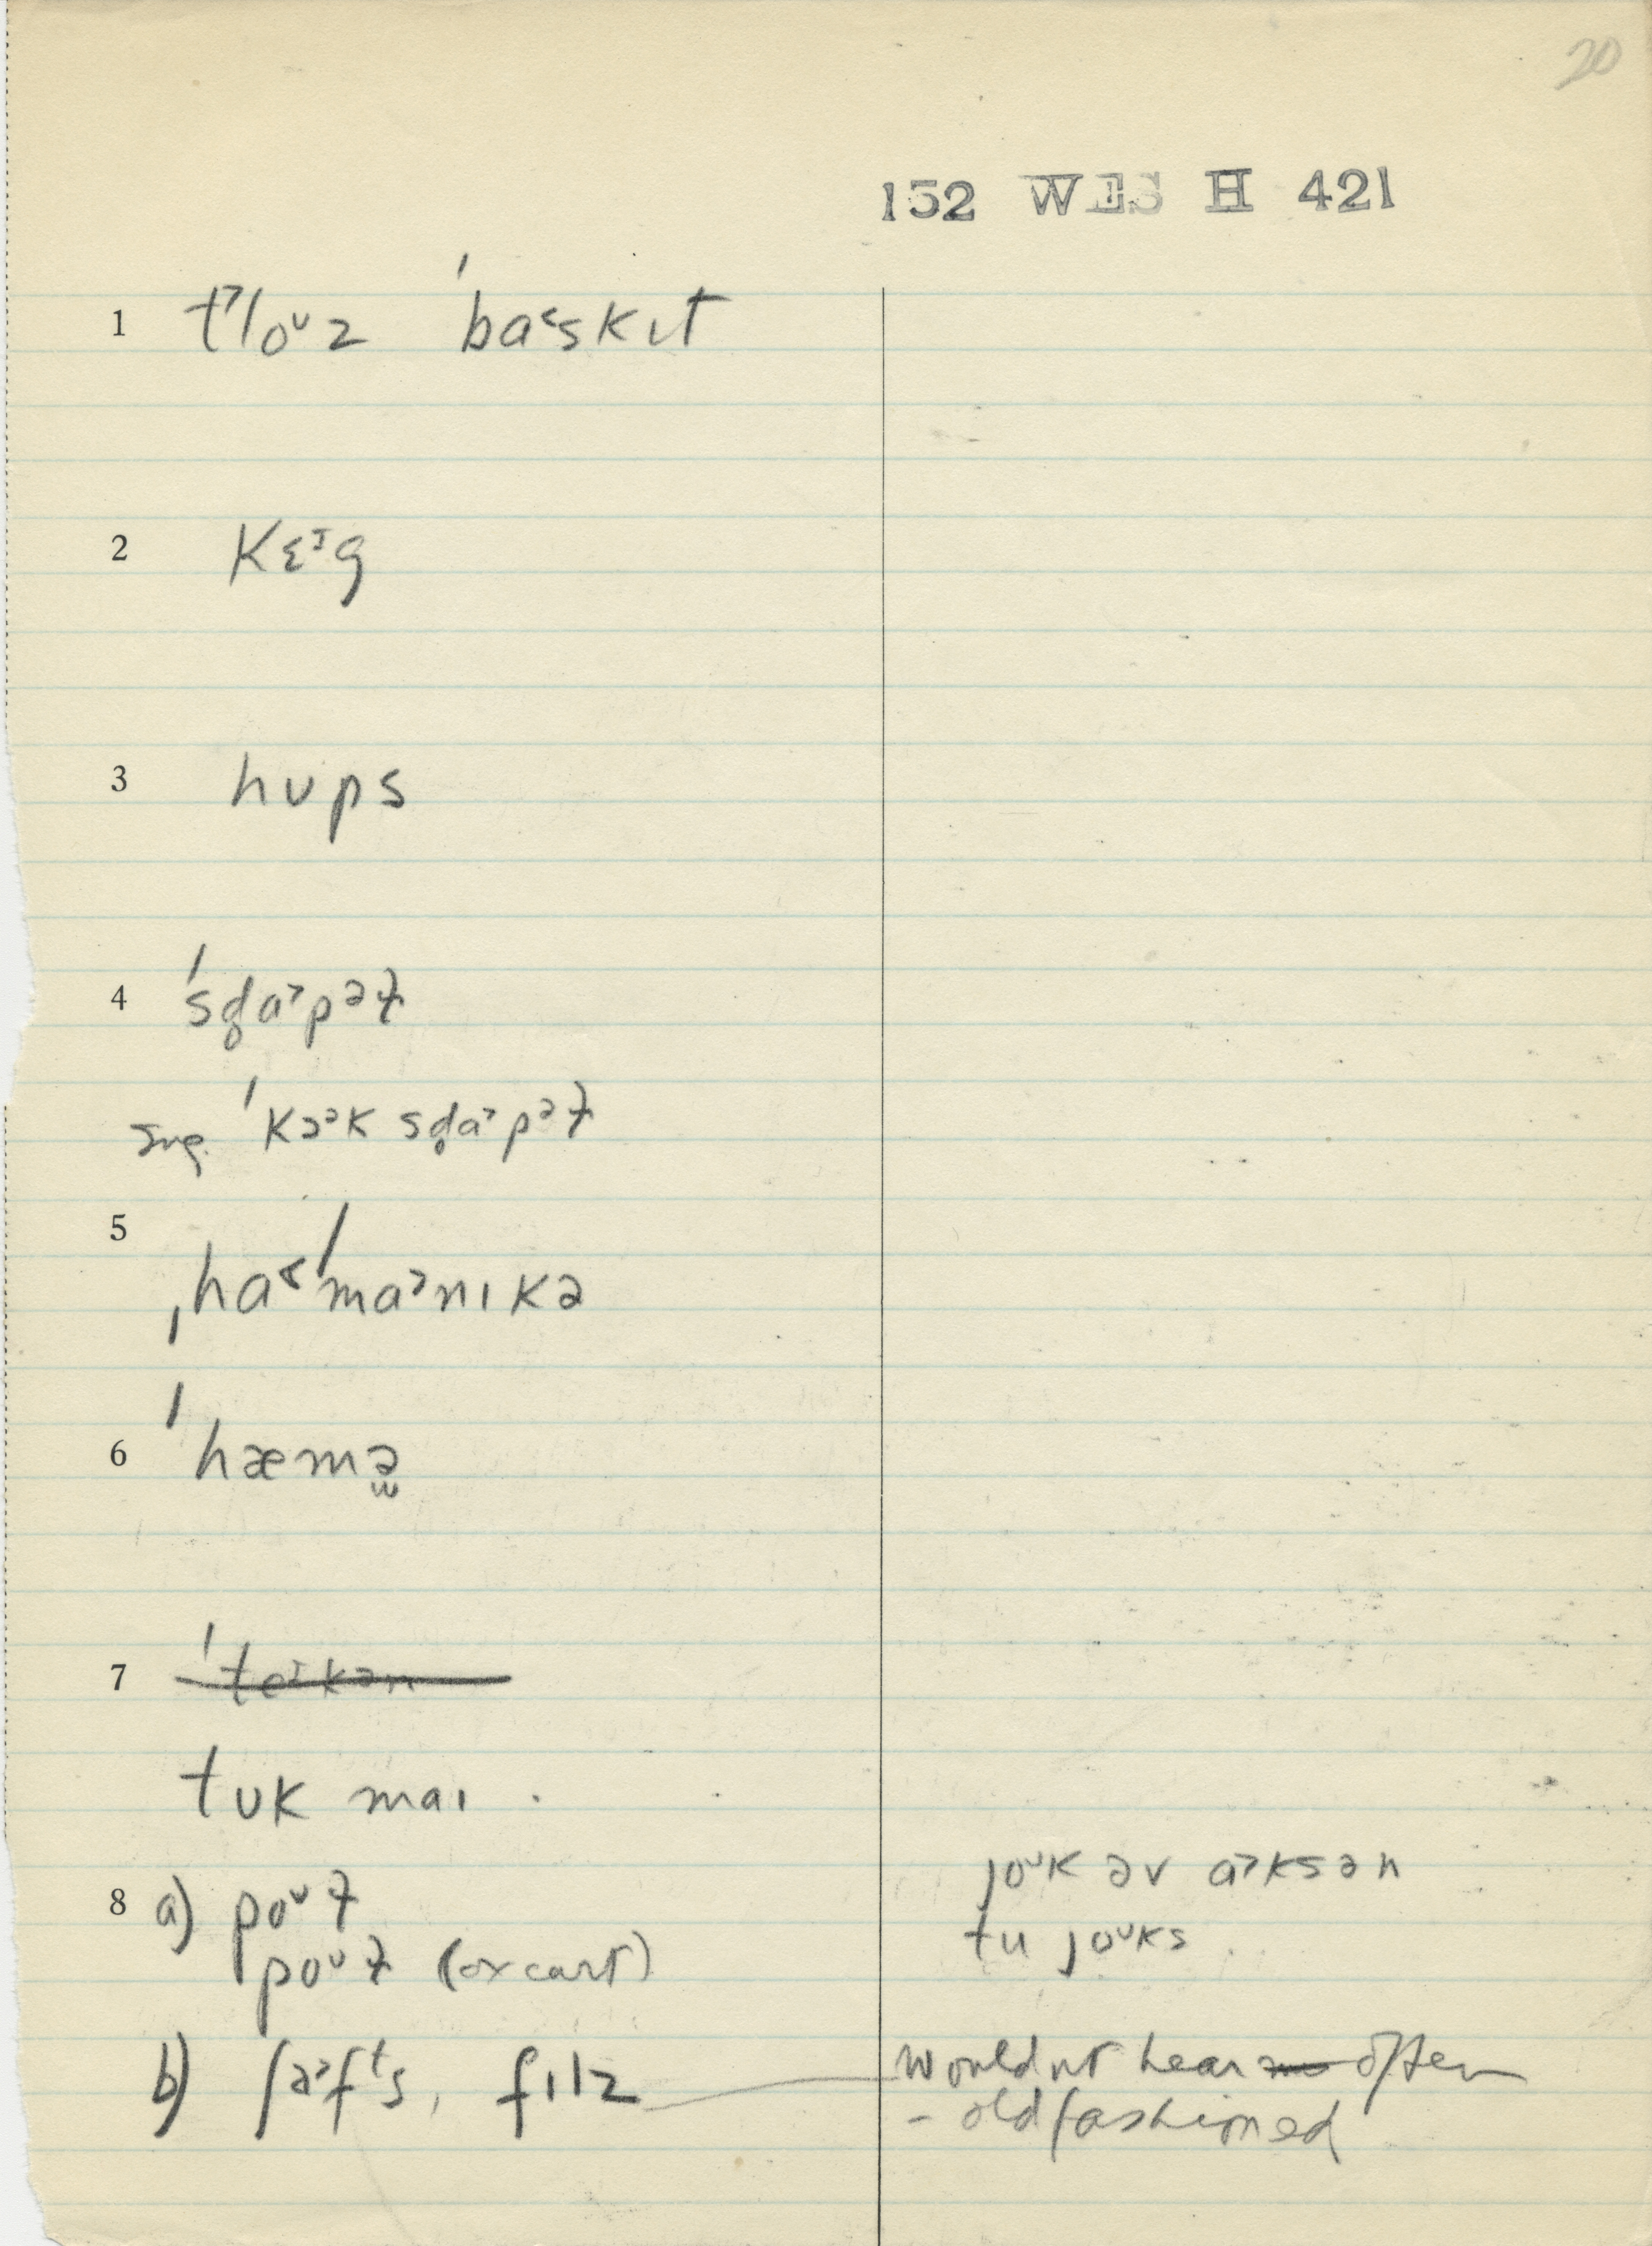 20
152 WES H 421
1 t˃loᶷz ˈba˂skɪt
2 kɛᶦg
3 hʊps
4 ˈsd̥a˃pəɫ
sug. ˈkɔᵊk sd̥a˃pəɫ
5 ˌha˂ˈma˃nɪkə
6 ˈhæmə̫
7 ˈteᶦkən
tʊk maɪ .
8 a) poᶷɫ
poᶷɫ (ox cart)
joᶷk əv a˃ksən
tu joᶷks .
b) ʃa˃fᵗs, fɪlz
wouldnt hear often
- old fashioned